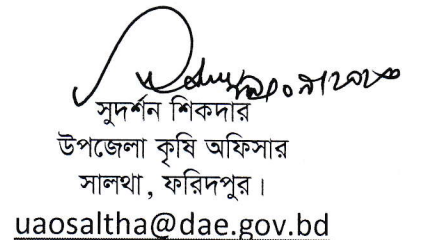 সুদর্শন শিকদার
উপজেলা কৃষি অফিসার
সালথা, ফরিদপুর।
uaosaltha@dae.gov.bd